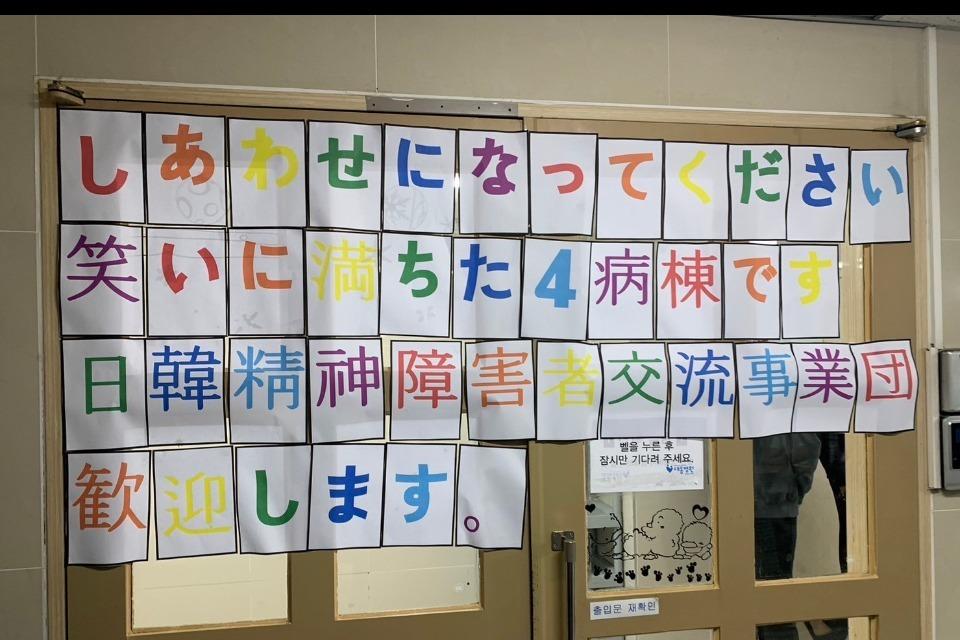 しあわせになってください
笑いに満ちた4病棟です
日韓精神障害者交流事業団
歓迎します。
벨을 누른 후
잠시만 기다려 주세요.
출입문 재확인